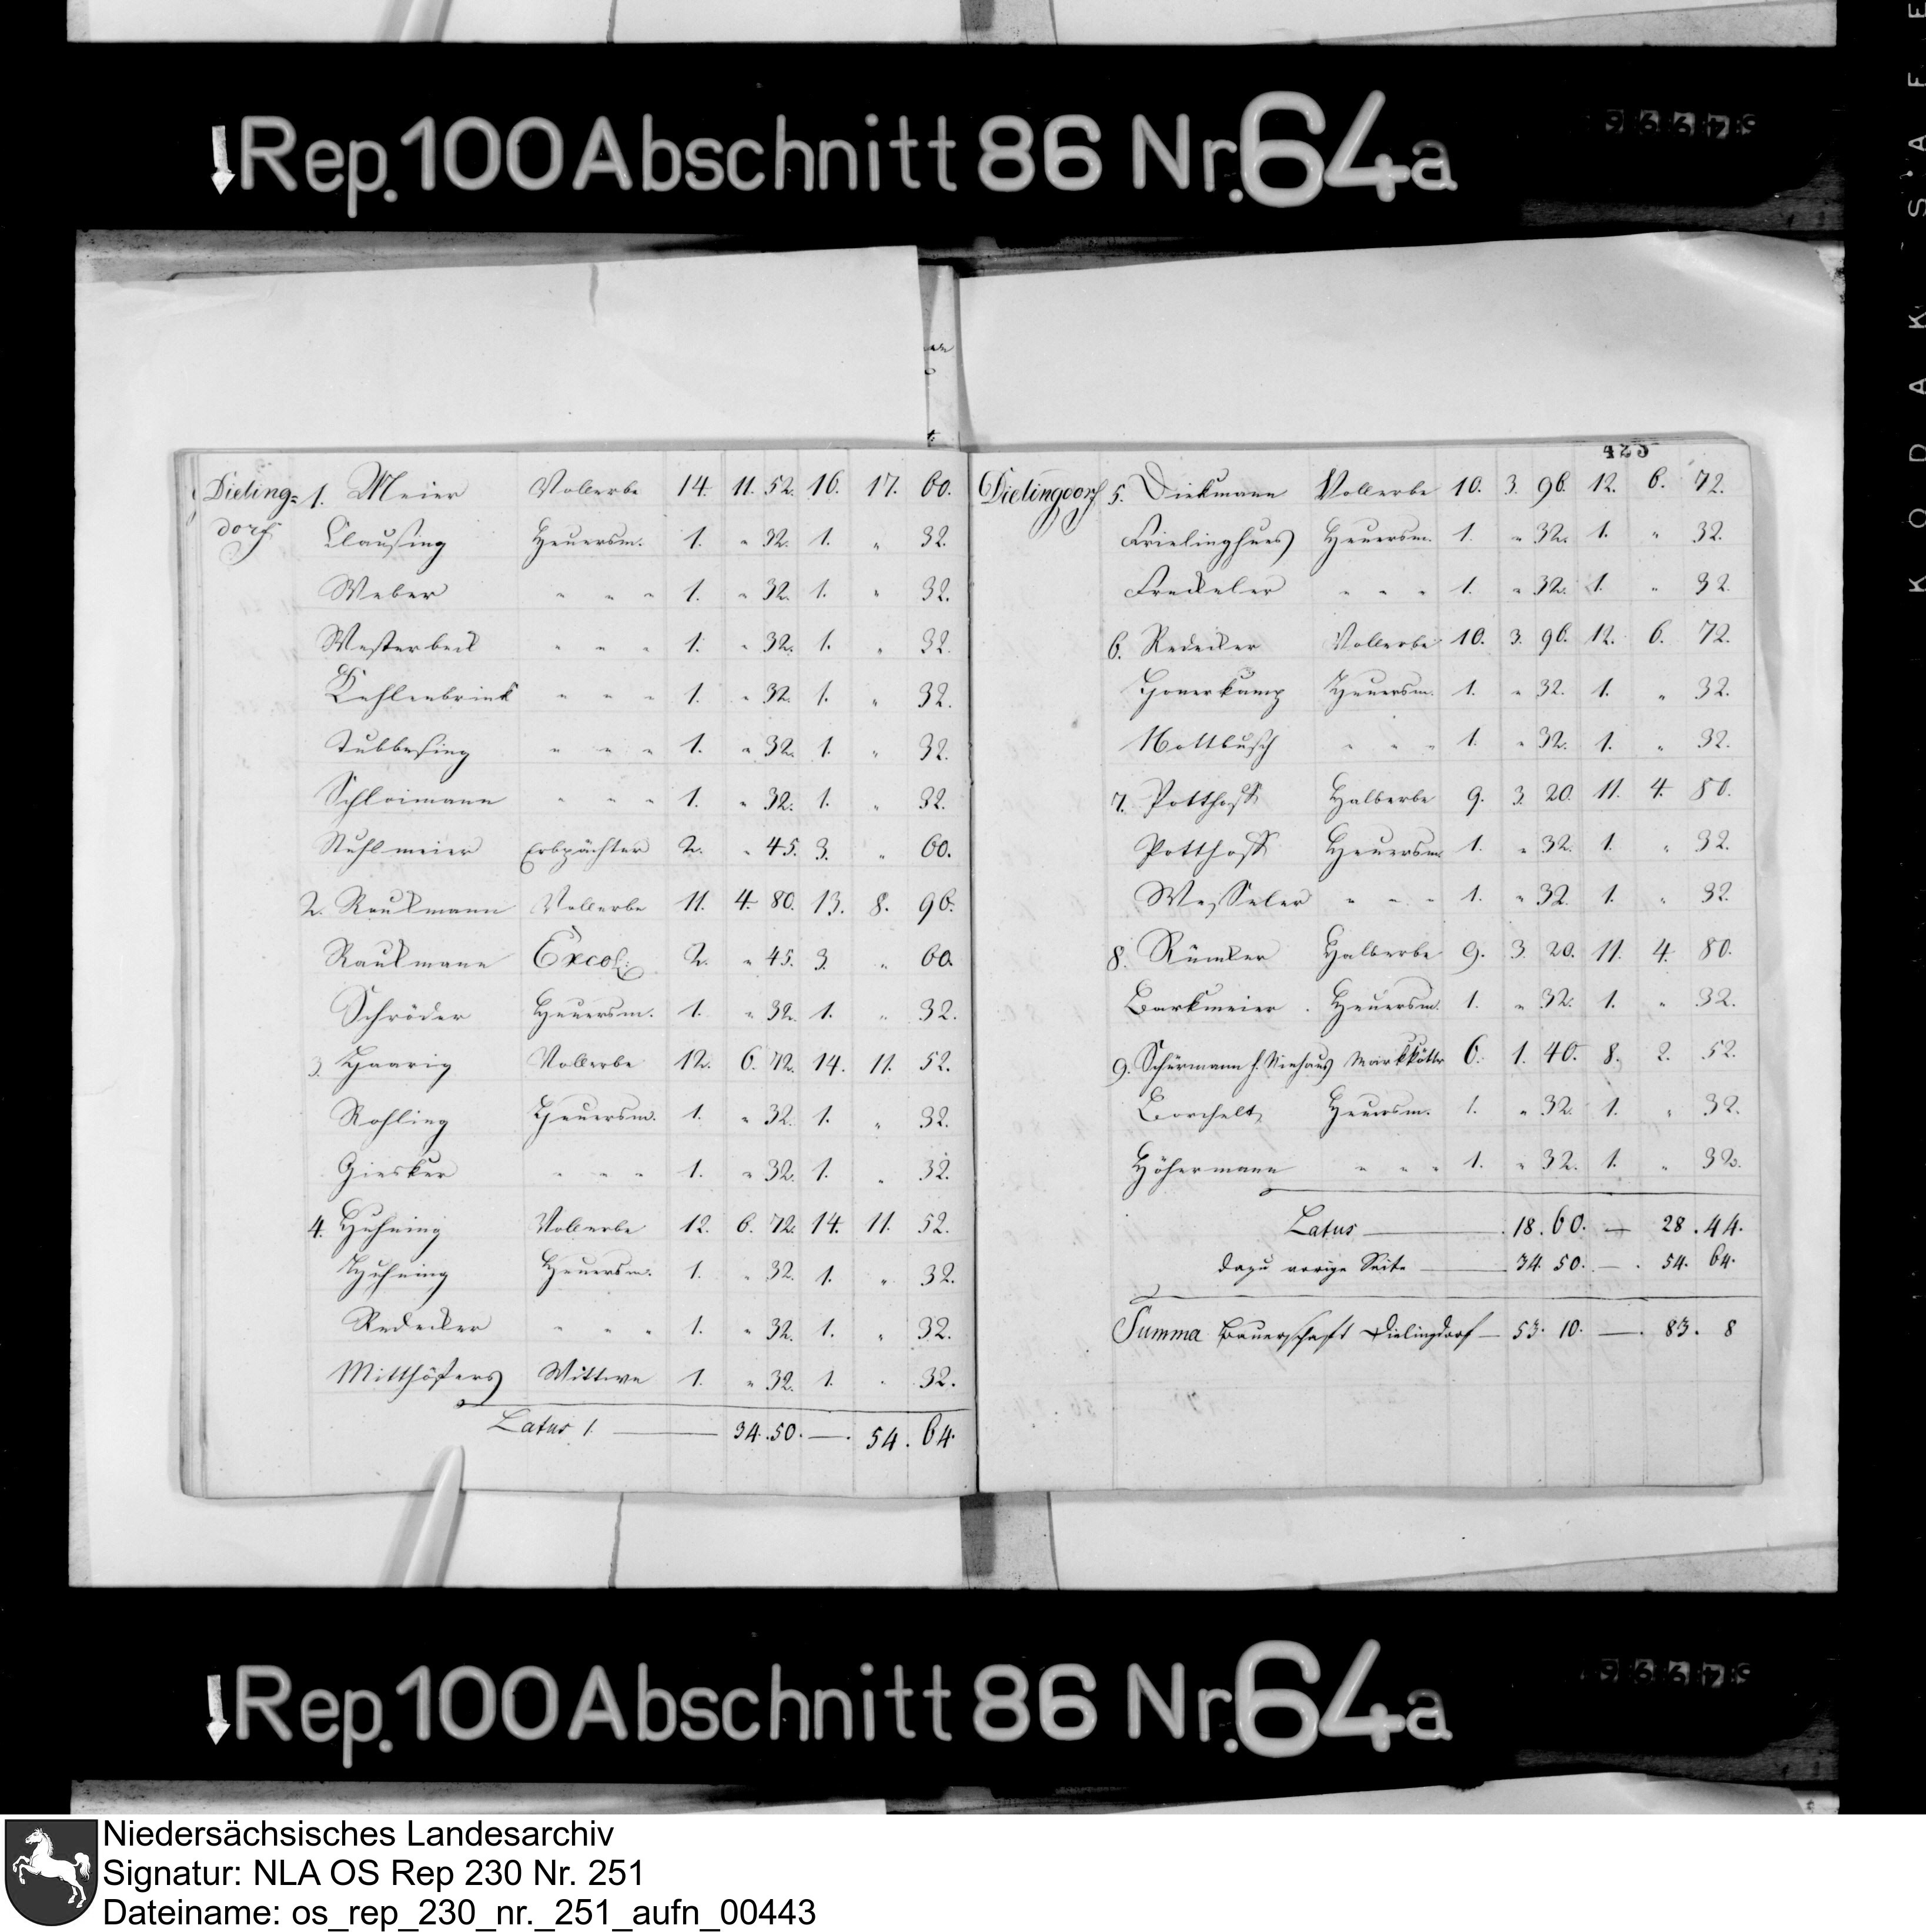 Rep. 100 Abschnitt 86 Nr. 64a
KODAK SAFE
425
Dieling= 1. Meier Vollerbe 14. 11. 52. 16. 17. 60.
dorf Clausing Heuersm. 1. " 32. 1. " 32.
Weber " " " 1. " 32. 1. " 32.
Westerbeck " " " 1. " 32. 1. " 32.
Kehlenbrink " " " 1. " 32. 1. " 32.
Tubbesing " " " 1. " 32. 1. " 32.
Schloimann " " " 1. " 32. 1. " 32.
Stuhlmeier Erbpächter 2. " 45. 3. " 60.
2. Rauckmann Vollerbe 11. 4. 80. 13. 8. 96.
Rauckmann Excol: 2. " 45. 3. " 60.
Schröder Heuersm. 1. " 32. 1. " 32.
3. Haarig Vollerbe 12. 6. 72. 14. 11. 52.
Rohling Heuersm. 1. " 32. 1. " 32.
Giesker " " " 1. " 32. 1. " 32.
4. Huhning Vollerbe 12. 6. 72. 14. 11. 52.
Huhning Heuersm. 1. " 32. 1. " 32.
Redecker " " " 1. " 32. 1. " 32.
Mitthöfers Wittwe 1. " 32. 1. " 32.
Latus 1. 34. 50. — 54. 64.
Dielingdorf 5. Diekmann Vollerbe 10. 3. 96. 12. 6. 72.
Frielinghues Heuersm. 1. " 32. 1. " 32.
Freckeler " " " 1. " 32. 1. " 32.
6. Redecker Vollerbe 10. 3. 96. 12. 6. 72.
Honerkamp Heuersm. 1. " 32. 1. " 32.
Nottbusch " " " 1. " 32. 1. " 32.
7. Potthoff Halberbe 9. 3. 20. 11. 4. 80.
Potthoff Heuersm. 1. " 32. 1. " 32.
Wesseler " " " 1. " 32. 1. " 32.
8. Rümker Halberbe 9. 3. 20. 11. 4. 80.
Barkmeier Heuersm. 1. " 32. 1. " 32.
9. Schürmann f. Niehaus Markkötter 6. 1. 40. 8. 2. 52.
Borchelt Heuersm. 1. " 32. 1. " 32.
Höhermann " " " 1. " 32. 1. " 32.
Latus — 18. 60. — 28. 44.
dazu vorige Seite — 34. 50. — 54. 64.
Summa Bauerschaft Dielingdorf — 53. 10. — 83. 8
Rep. 100 Abschnitt 86 Nr. 64a
Niedersächsisches Landesarchiv
Signatur: NLA OS Rep 230 Nr. 251
Dateiname: os_rep_230_nr._251_aufn_00443